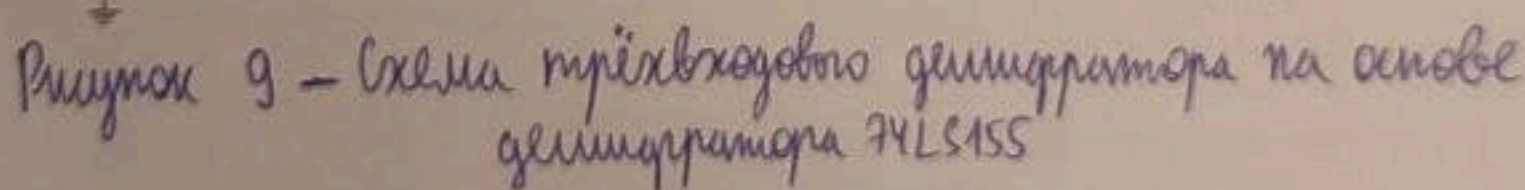 Рисунок 9 – Схема трёхвходового дешифратора на основе
дешифратора 74LS155